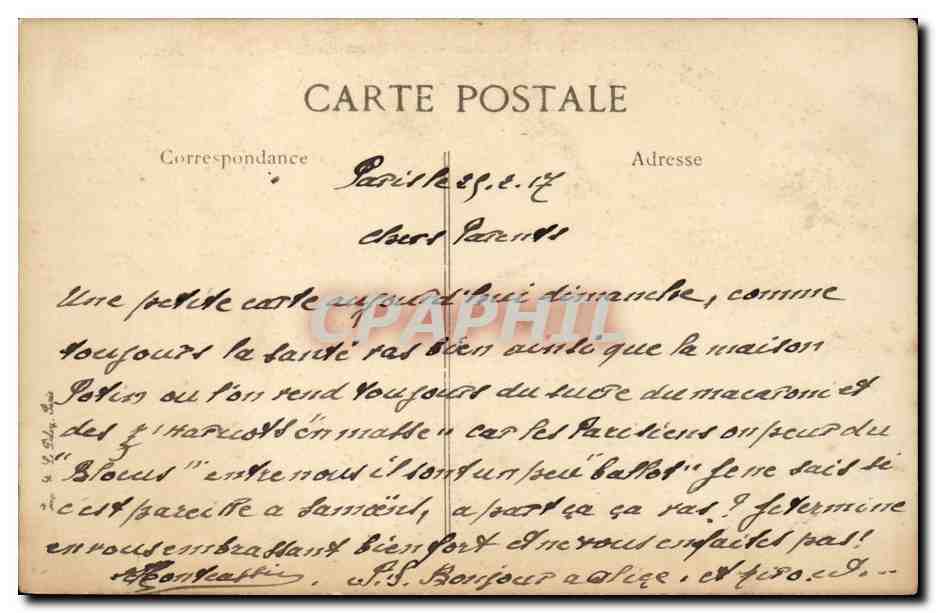 CARTE POSTALE
Correspondance
Adresse
Paris le 25.2.17
chers Parents
Une petite carte aujourd'hui dimanche, comme
toujours la santé vas bien ainsi que la maison
Potin ou l'on vend toujours du sucre du macaroni et
des z'haricots "en masse" car les Parisiens on peur du
"Blocus" entre nous il sont un peu "ballot" Je ne sais si
c'est pareille a Samöens, a part ça ça vas? Je termine
en vous embrassant bien fort et ne vous enfaites pas!
P.S. Bonjour a alice. et
CPAPHIL